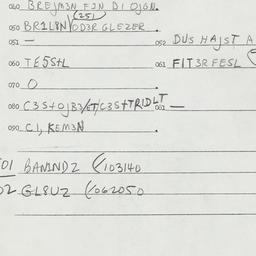 040 BREJM3N FJN DI OJGN.
(251)
050 BR1L8N/OD3R GLEZER.
051 — 052 DUS HAJST A
060 TE5S+L 061 FIT3R FESL (
070 O
080 C3S+OJB3/ET/C3S+TRIDLT 081 —
090 CI, KEM3N
01 BANIND2 (/103140
02 GL8U2 (/062050